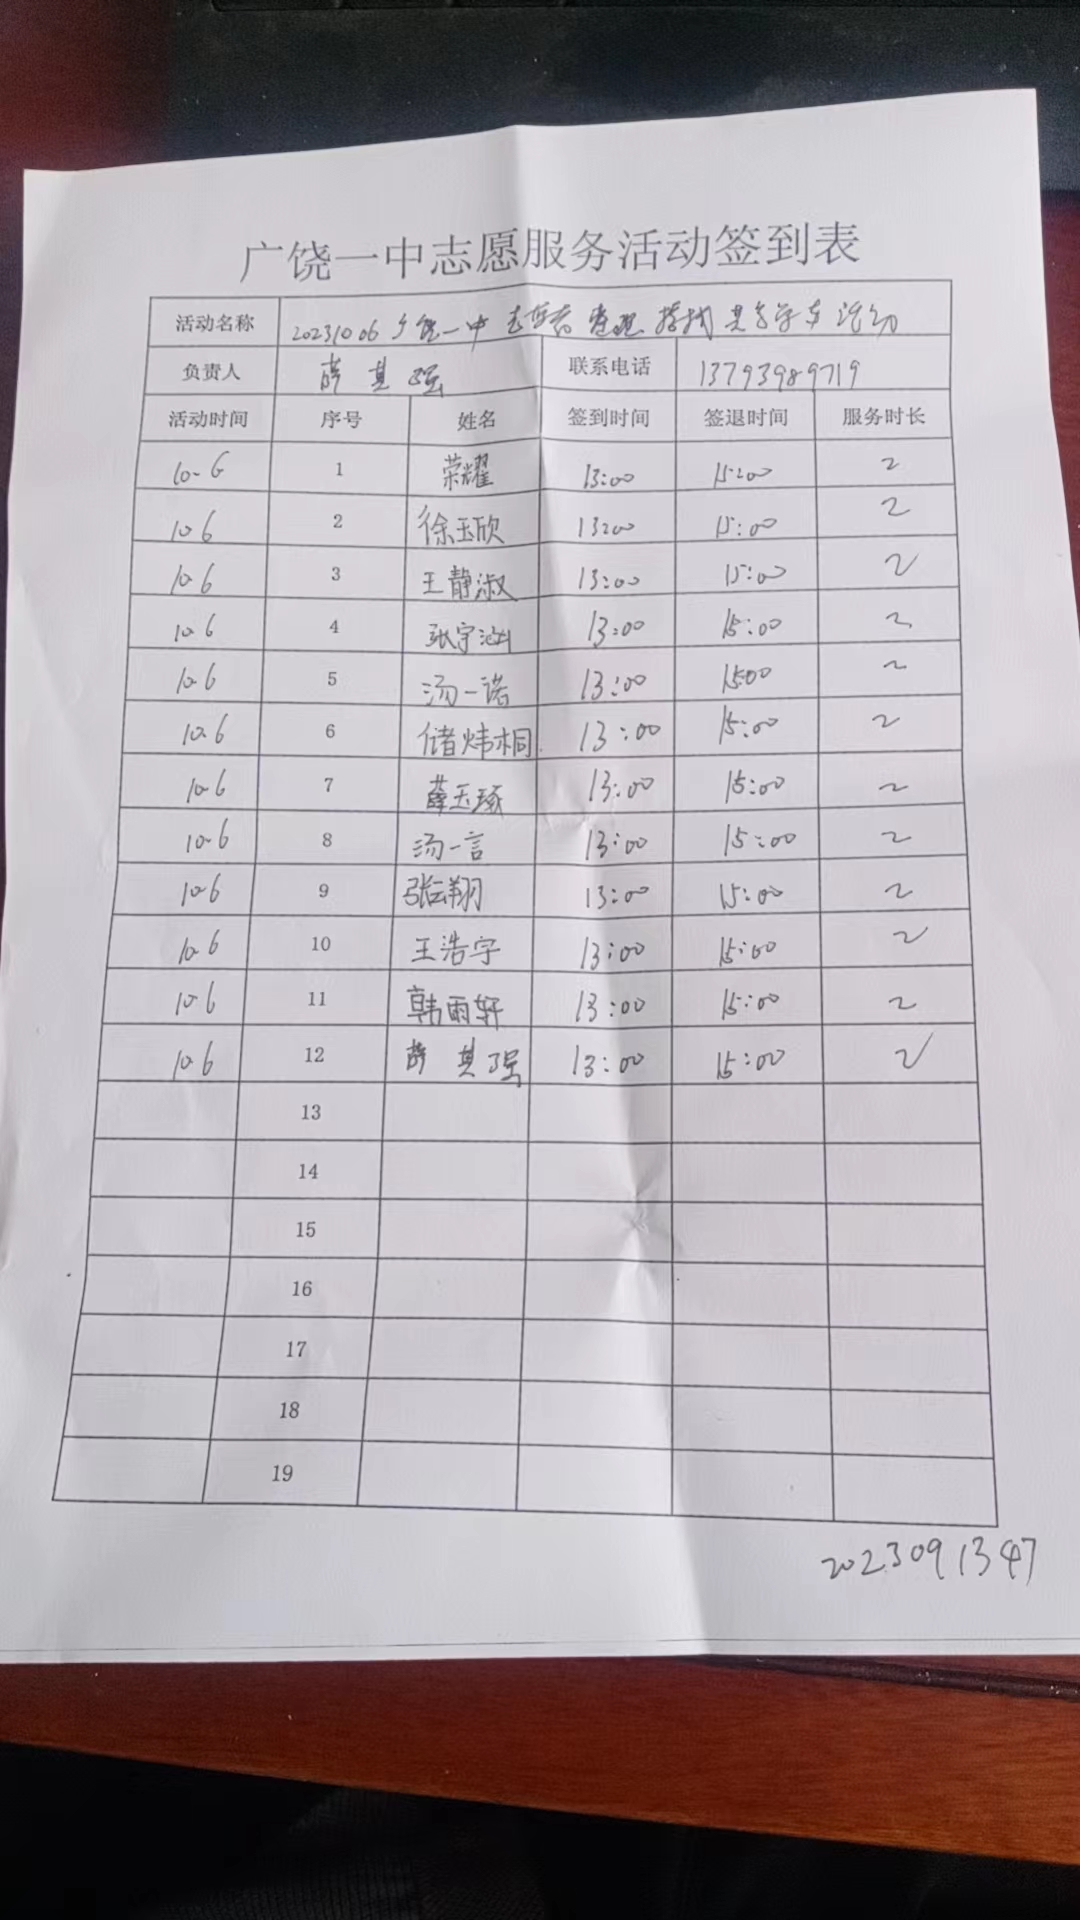 广饶一中志愿服务活动签到表
活动名称 20231006广饶一中志愿者整理摆放共享单车活动
负责人 薛其强 联系电话 13793989719
活动时间 序号 姓名 签到时间 签退时间 服务时长
10-6 1 荣耀 13:00 15:00 2
10-6 2 徐玉欣 13:00 15:00 2
10-6 3 王静淑 13:00 15:00 2
10-6 4 张宇涵 13:00 15:00 2
10-6 5 汤一诺 13:00 15:00 2
10-6 6 储炜桐 13:00 15:00 2
10-6 7 薛玉琢 13:00 15:00 2
10-6 8 汤一言 13:00 15:00 2
10-6 9 张云翔 13:00 15:00 2
10-6 10 王浩宇 13:00 15:00 2
10-6 11 韩雨轩 13:00 15:00 2
10-6 12 薛其强 13:00 15:00 2
13
14
15
16
17
18
19
2023091347